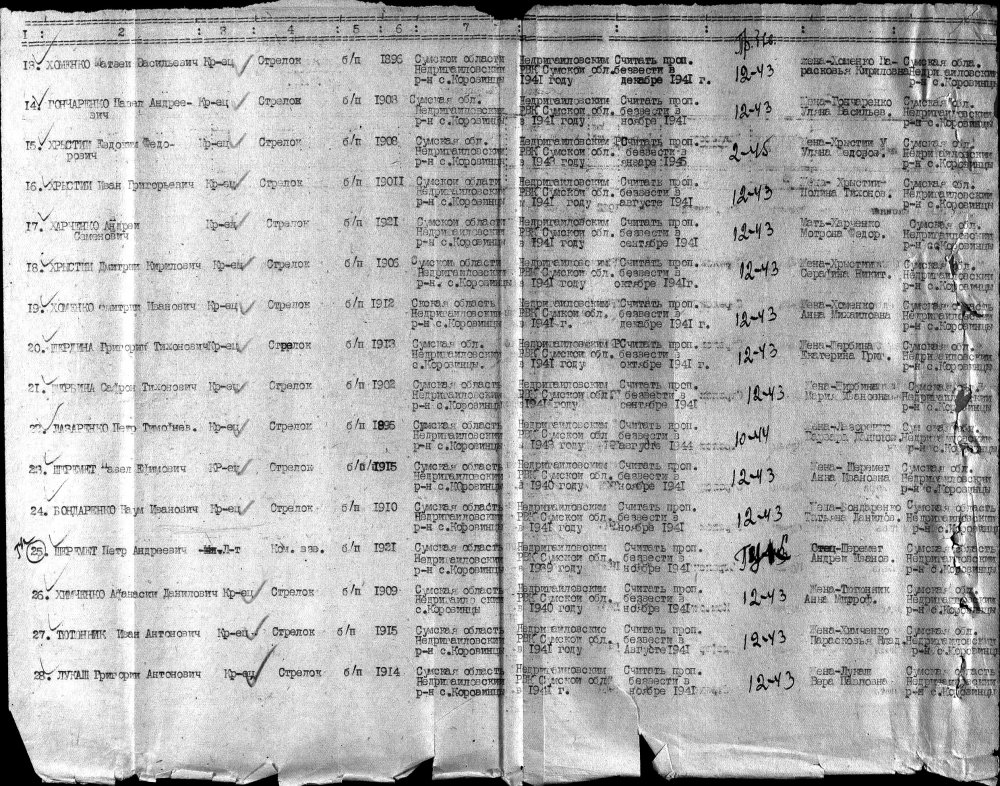 I : 2 : 3 : 4 : 5 : 6 : 7 : : : :
13. ХОМЕНКО Матвей Васильевич Кр-ец Стрелок б/п 1896 Сумской области Недригайловским Считать проп. жена-Хоменко Па- Сумская обл.
Недригайловский РВК Сумской обл. безвести в 12-43 расковья Кирилловна Недригайловский
р-н с.Коровинцы 1941 году декабре 1941 г. р-н с.Коровинцы
14. ГОНЧАРЕНКО Павел Андрее- Кр-ец Стрелок б/п 1903 Сумская обл. Недригайловским Считать проп. 12-43 Жена-Гончаренко Сумская обл.
вич Недригайловский РВК Сумской обл. безвести в Уляна Васильев. Недригайловский
р-н с.Коровинцы в 1941 году ноябре 1941 р-н с.Коровинцы
15. ХРЫСТИЧ Евдоким Федо- Кр-ец Стрелок б/п 1908 Сумская обл. Недригайловским Считать проп. 2-45 Жена-Христич У Сумская обл.
рович Недригайловский РВК Сумской обл. безвести в Уляна Федоров. Недригайловский
р-н с.Коровинцы в 1943 году январе 1945 р-н с.Коровинцы
16. ХРЫСТИЧ Иван Григорьевич Кр-ец Стрелок б/п 190II Сумской области Недригайловским Считать проп. 12-43 Жена- Христич Сумская обл.
Недригайловский РВК Сумской обл. безвести в Полина Тихонов. Недригайловский
р-н с.Коровинцы в 1941 году августе 1941 р-н с.Коровинцы
17. ХАРЧЕНКО Андрей Кр-ец Стрелок б/п 1921 Сумской области Недригайловским Считать проп. 12-43 Мать-Харченко Сумская обл.
Семенович Недригайловский РВК Сумской обл. безвести в Мотрона Федор. Недригайловский
р-н с.Коровинцы в 1941 году сентябре 1941 р-н с.Коровинцы
18. ХРЫСТИЧ Дмитрий Кирилович Кр-ец Стрелок б/п 1906 Сумской области Недригайловским Считать проп. 12-43 Жена-Христич Сумская обл.
Недригайловский РВК Сумской обл. безвести в Никит. Недригайловский
р-н. с.Коровинцы в 1941 году октябре 1941г. р-н с.Коровинцы
19. ХОМЕНКО Дмитрий Иванович Кр-ец Стрелок б/п 1912 область Недригайловским Считать проп. 12-43 Жена-Хоменко Сумская область
Недригайловский РВК Сумской обл. безвести в Анна Михайловна Недригайловский
р-н с.Коровинцы в 1941 г. декабре 1941 г. р-н с.Коровинцы
20. Григорий Тихонович Кр-ец Стрелок б/п 1913 Сумская обл. Недригайловским Считать проп. 12-43 Сумская обл.
Недригайловский РВК Сумской обл. безвести в Екатерина Григ. Недригайловский
с.Коровинцы. в 1941 году октябре 1941 г. р-н с.Коровинцы
21. Тихонович Кр-ец Стрелок б/п 1902 Сумская область Недригайловским Считать проп. 12-43 Сумская область
Недригайловский РВК Сумской обл. безвести в Мария Ивановна Недригайловский
р-н с.Коровинцы в 1941 году сентябре 1941 р-н с.Коровинцы
22. ЛАЗАРЕНКО Петр Тимофиев. Кр-ец Стрелок б/п 1895 Сумская область Недригайловским Считать проп. 10-44 Жена-Лазаренко Сумская обл.
Недригайловский РВК Сумской обл безвести в Недригайловский
р-н с.Коровинцы в 1943 году августе 1944 р-н с.Коровинцы
23. ШЕРЕМЕТ Павел Ефимович КР-ец Стрелок б/п 1915 Сумская область Недригайловским Считать проп. 12-43 Жена- Шеремет Сумская обл.
Недригайловский РВК Сумской обл. безвести в Анна Ивановна Недригайловский
р-н с.Коровинцы в 1940 году ноябре 1941 р-н с.Коровинцы
24. БОНДАРЕНКО Наум Иванович Кр-ец Стрелок б/п 1910 Сумская область Недригайловским Считать проп. 12-43 Жена-Бондаренко Сумская область
Недригайловский РВК Сумской обл. безвести в Татьяна Данилов. Недригайловский
р-н с.Коровинцы в 1941 году ноябре 1941 р-н с.Коровинцы
25. ШЕРЕМЕТ Петр Андреевич Л-т Ком. взв. б/п 1921 Сумская область Недригайловским Считать проп. Отец-Шеремет Сумская обл.
Недригайловский РВК Сумской обл. безвести в Андрей Иванов. Недригайловский
р-н с.Коровинцы в 1939 году ноябре 1941 р-н с.Коровинцы
26. ХИМЧЕНКО Афанасий Данилович Кр-ец Стрелок б/п 1909 Сумская область Недригайловским Считать проп. 12-43 Жена-Тютюнник Сумская область
Недригайловский РВК Сумской обл. безвести в Анна Митроф. Недригайловский
с.Коровинцы в 1940 году ноябре 1941 р-н с.Коровинцы
27. ТЮТЮННИК Иван Антонович Кр-ец Стрелок б/п 1915 Сумская область Недригайловским Считать проп. 12-43 Жена-Химченко Сумская обл.
Недригайловский РВК Сумской обл. безвести в Парасковья Недригайловский
р-н с.Коровинцы в 1941 году Августе 1941 р-н с.Коровинцы
28. ЛУКАШ Григорий Антонович Кр-ец Стрелок б/п 1914 Сумская область Недригайловским Считать проп. 12-43 Жена-Лукаш Сумская область
Недригайловский РВК Сумской обл безвести в Вера Павловна Недригайловский
р-н с.Коровинцы в 1941 г. ноябре 1941 р-н с.Коровинцы